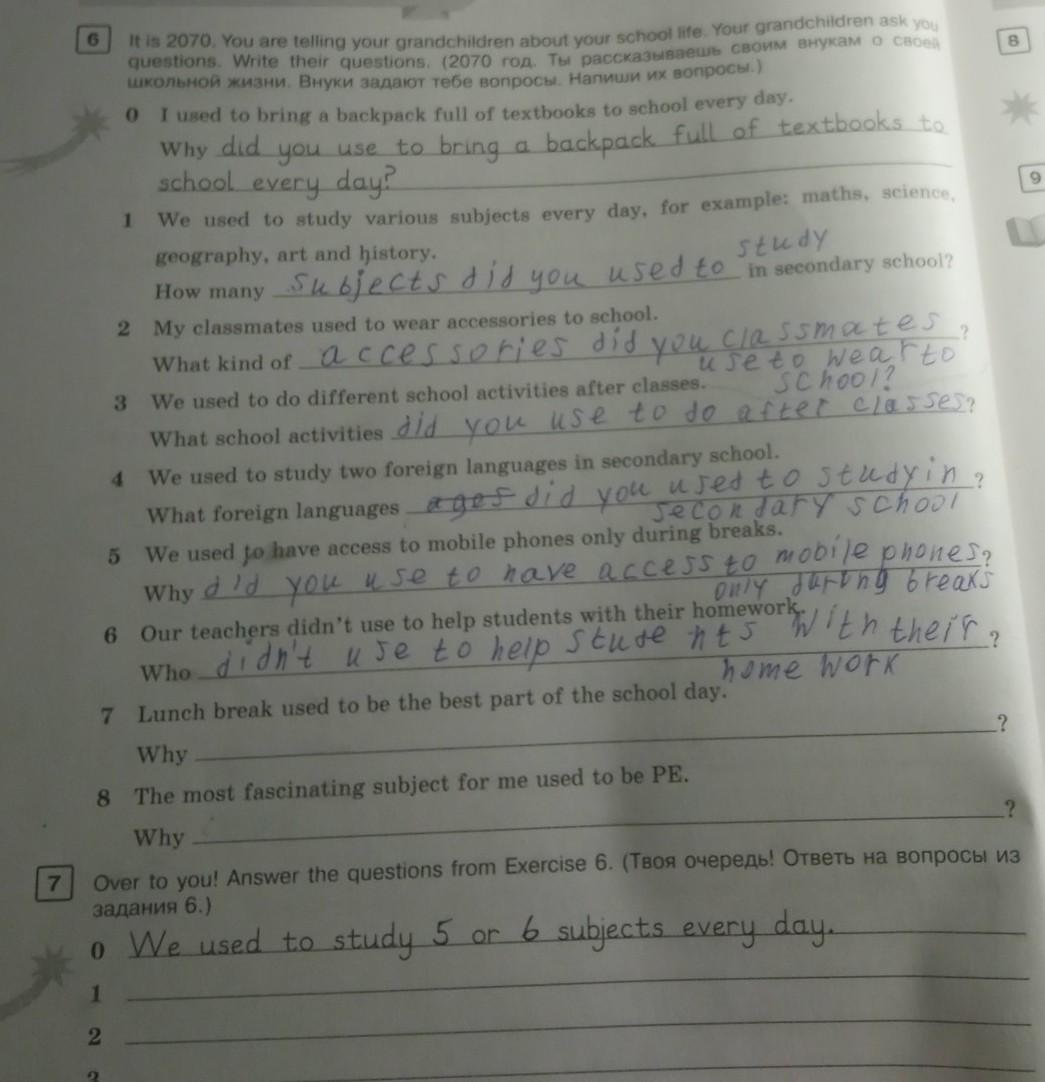 6 It is 2070. You are telling your grandchildren about your school life. Your grandchildren ask you
questions. Write their questions. (2070 год. Ты рассказываешь своим внукам о своей
школьной жизни. Внуки задают тебе вопросы. Напиши их вопросы.)
8
0 I used to bring a backpack full of textbooks to school every day.
Why did you use to bring a backpack full of textbooks to
school every day?
9
1 We used to study various subjects every day, for example: maths, science,
geography, art and history.
study
How many subjects did you used to in secondary school?
2 My classmates used to wear accessories to school.
What kind of accessories did you classmates ?
use to wear to
school?
3 We used to do different school activities after classes.
What school activities did you use to do after classes?
4 We used to study two foreign languages in secondary school.
What foreign languages ages did you used to study in ?
secondary school
5 We used to have access to mobile phones only during breaks.
Why did you use to have access to mobile phones?
only during breaks
6 Our teachers didn't use to help students with their homework.
Who didn't use to help students with their ?
home work
7 Lunch break used to be the best part of the school day.
Why ?
8 The most fascinating subject for me used to be PE.
Why ?
7 Over to you! Answer the questions from Exercise 6. (Твоя очередь! Ответь на вопросы из
задания 6.)
0 We used to study 5 or 6 subjects every day.
1
2
3